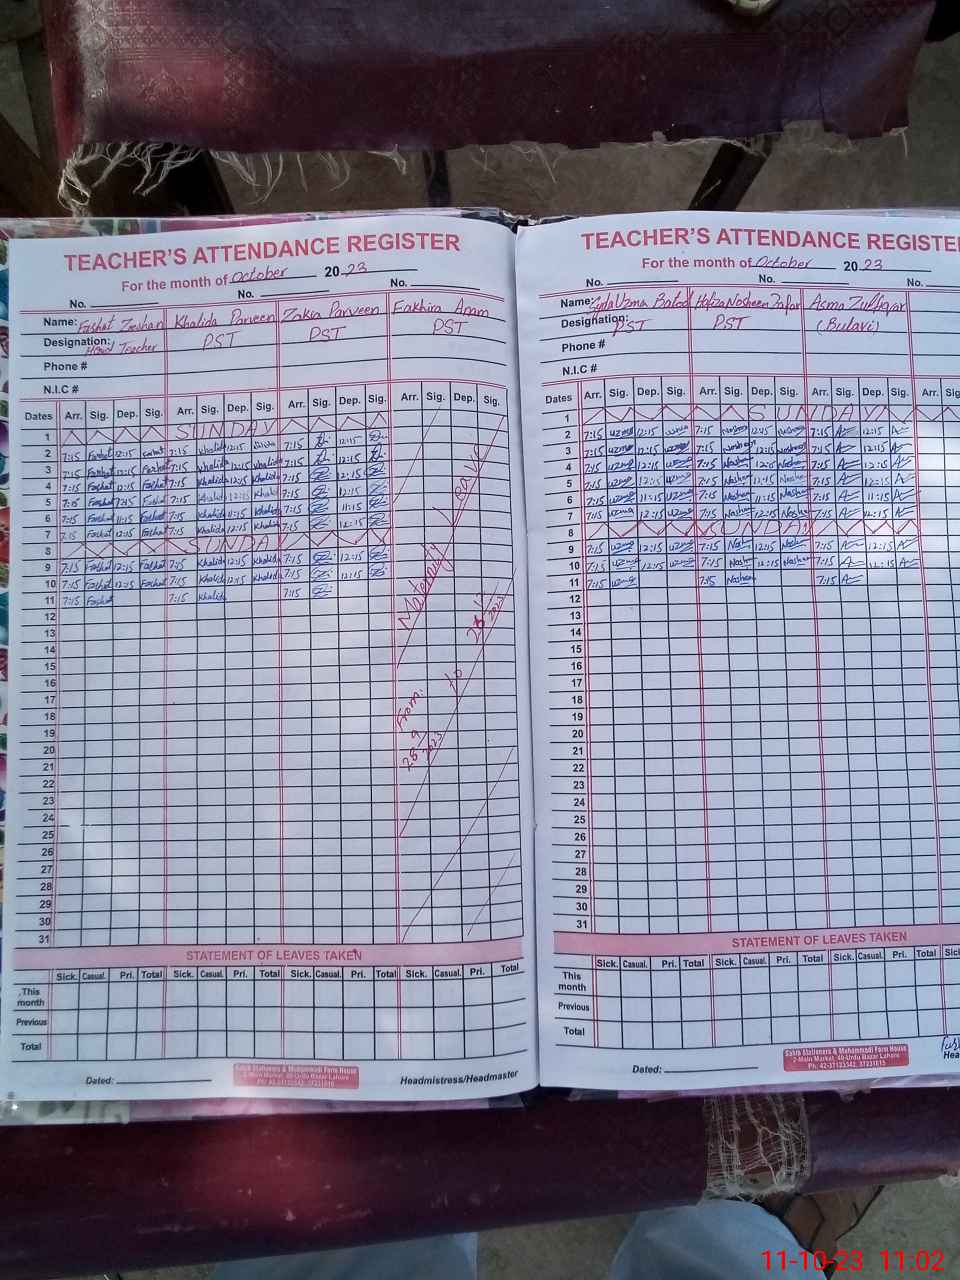 TEACHER'S ATTENDANCE REGISTER
For the month of October 2023
No. No. No.
Name: Farhat Zeeshan Khalida Parveen Zakia Parveen Fakhira Anam
Designation: Head Teacher PST PST PST
Phone #
N.I.C #
Dates Arr. Sig. Dep. Sig. Arr. Sig. Dep. Sig. Arr. Sig. Dep. Sig. Arr. Sig. Dep. Sig.
1 SUNDAY
2 7:15 Farhat 12:15 Farhat 7:15 Khalida 12:15 7:15 12:15
3 7:15 Farhat 12:15 Farhat 7:15 Khalida 12:15 Khalida 7:15 12:15
4 7:15 Farhat 12:15 Farhat 7:15 Khalida 12:15 Khalida 7:15 12:15
5 7:15 Farhat 12:15 Farhat 7:15 Khalida 12:15 Khalida 7:15 12:15
6 7:15 Farhat 11:15 Farhat 7:15 Khalida 11:15 Khalida 7:15 11:15
7 7:15 Farhat 12:15 Farhat 7:15 Khalida 12:15 Khalida 7:15 12:15
8 SUNDAY
9 7:15 Farhat 12:15 Farhat 7:15 Khalida 12:15 Khalida 7:15 12:15
10 7:15 Farhat 12:15 Farhat 7:15 Khalida 12:15 Khalida 7:15 12:15
11 7:15 Farhat 7:15 Khalida 7:15
12
13
14
15
16
17
18
19
20
21
22
23
24
25
26
27
28
29
30
31
Maternally Leave
From: 28/9/2023 to 26/12/2023
STATEMENT OF LEAVES TAKEN
Sick. Casual. Pri. Total Sick. Casual. Pri. Total Sick. Casual. Pri. Total Sick. Casual. Pri. Total
This month
Previous
Total
Dated:
Sabib Stationers & Muhammadi Form House
2-Main Market, 40-Urdu Bazar Lahore
Ph: 42-37123342, 37231615
Headmistress/Headmaster
TEACHER'S ATTENDANCE REGISTER
For the month of October 2023
No. No. No.
Name: Syda Uzma Batool Hafiza Nosheen Zafar Asma Zulfiqar
Designation: PST PST (Bulavi)
Phone #
N.I.C #
Dates Arr. Sig. Dep. Sig. Arr. Sig. Dep. Sig. Arr. Sig. Dep. Sig. Arr.
1 SUNDAY
2 7:15 uzma 12:15 uzma 7:15 Nosheen 12:15 Nosheen 7:15 12:15
3 7:15 uzma 12:15 uzma 7:15 Nosheen 12:15 Nosheen 7:15 12:15
4 7:15 uzma 12:15 uzma 7:15 Nosheen 12:15 Nosheen 7:15 12:15
5 7:15 uzma 12:15 uzma 7:15 Nosheen 12:15 Nosheen 7:15 12:15
6 7:15 uzma 11:15 uzma 7:15 Nosheen 11:15 Nosheen 7:15 11:15
7 7:15 uzma 12:15 uzma 7:15 Nosheen 12:15 Nosheen 7:15 12:15
8 SUNDAY
9 7:15 uzma 12:15 uzma 7:15 Nosheen 12:15 Nosheen 7:15 12:15
10 7:15 uzma 12:15 uzma 7:15 Nosheen 12:15 Nosheen 7:15 12:15
11 7:15 uzma 7:15 Nosheen 7:15
12
13
14
15
16
17
18
19
20
21
22
23
24
25
26
27
28
29
30
31
STATEMENT OF LEAVES TAKEN
Sick. Casual. Pri. Total Sick. Casual. Pri. Total Sick. Casual. Pri. Total
This month
Previous
Total
Dated:
Sabib Stationers & Muhammadi Form House
2-Main Market, 40-Urdu Bazar Lahore
Ph: 42-37123342, 37231615
11-10-23 11:02